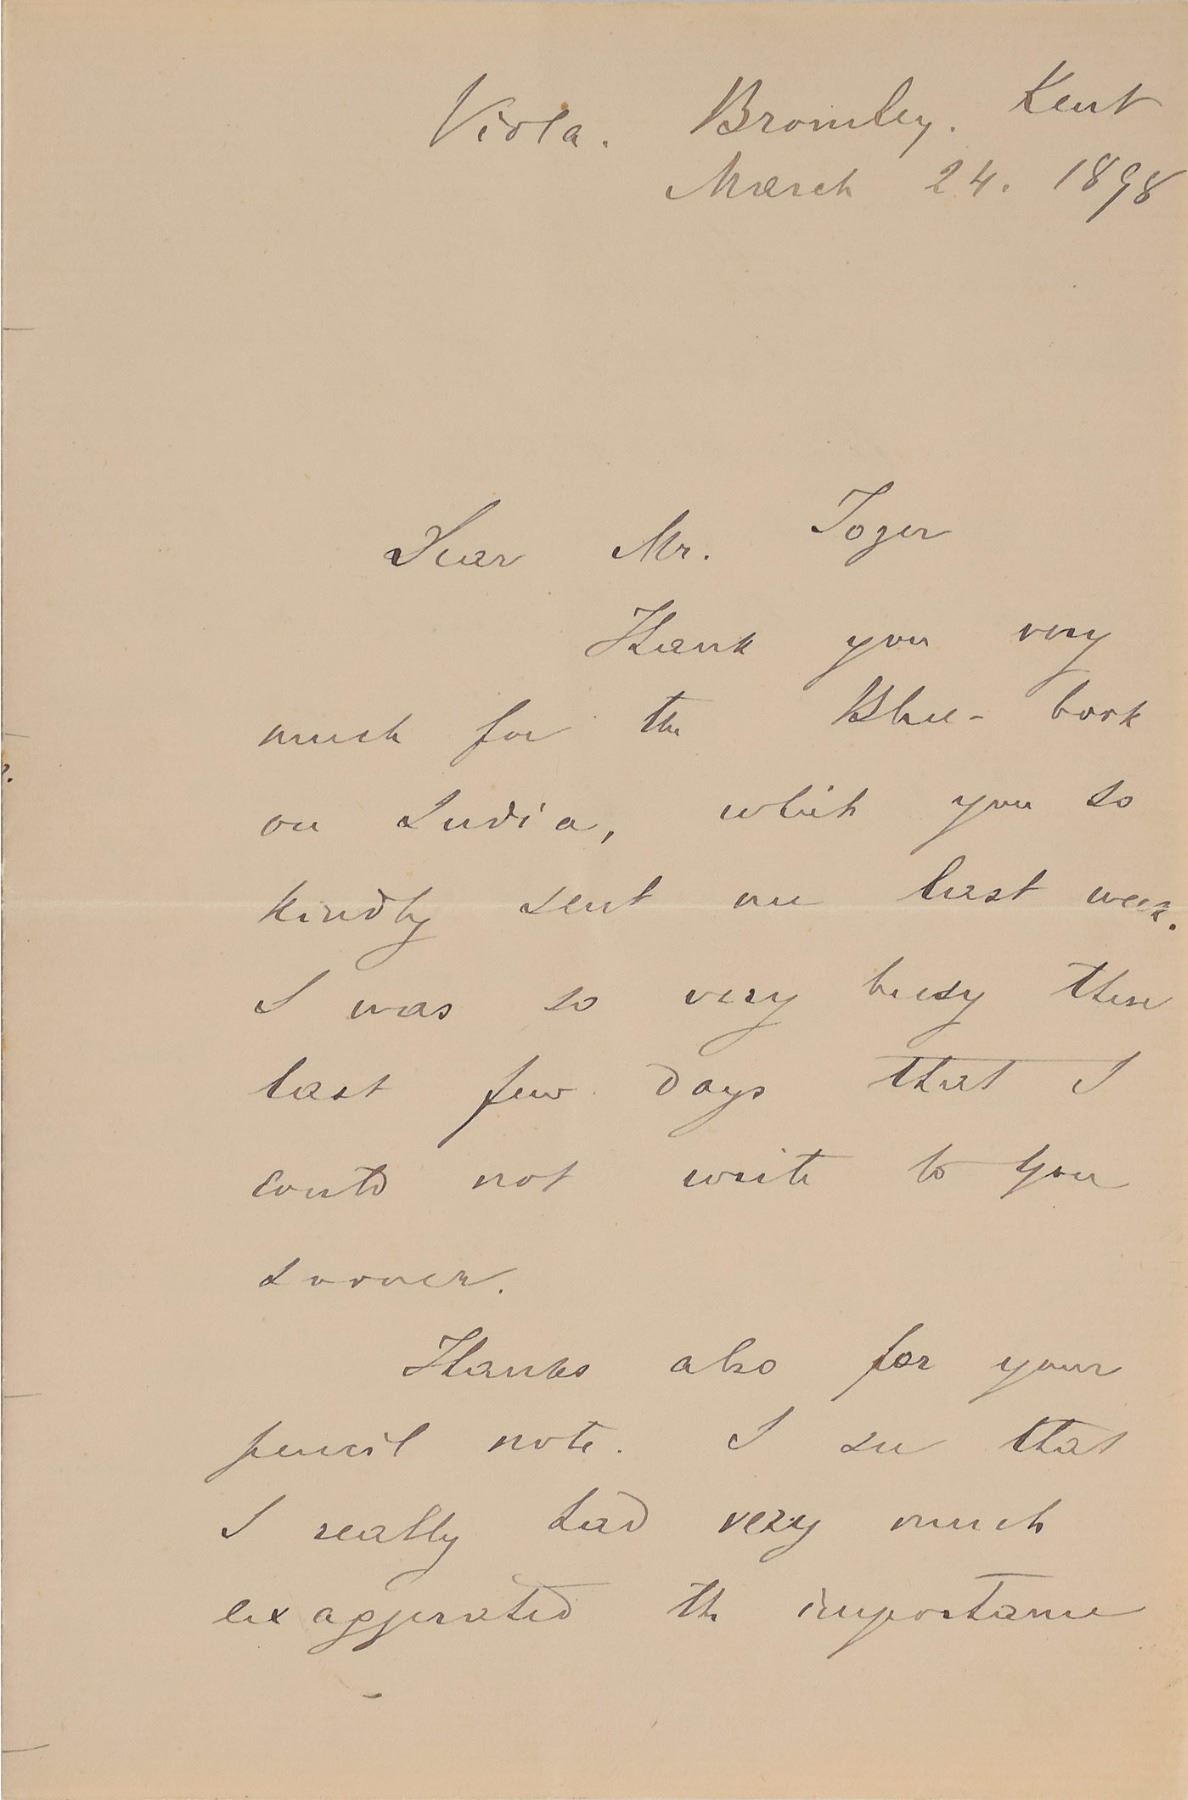 Viola. Bromley. Kent
March 24. 1898
Dear Mr. Tozer
Thank you very
much for the Blue-book
on India, which you so
kindly sent me last week.
I was so very busy these
last few days that I
could not write to you
sooner.
Thanks also for your
pencil note. I see that
I really had very much
exaggerated the importance